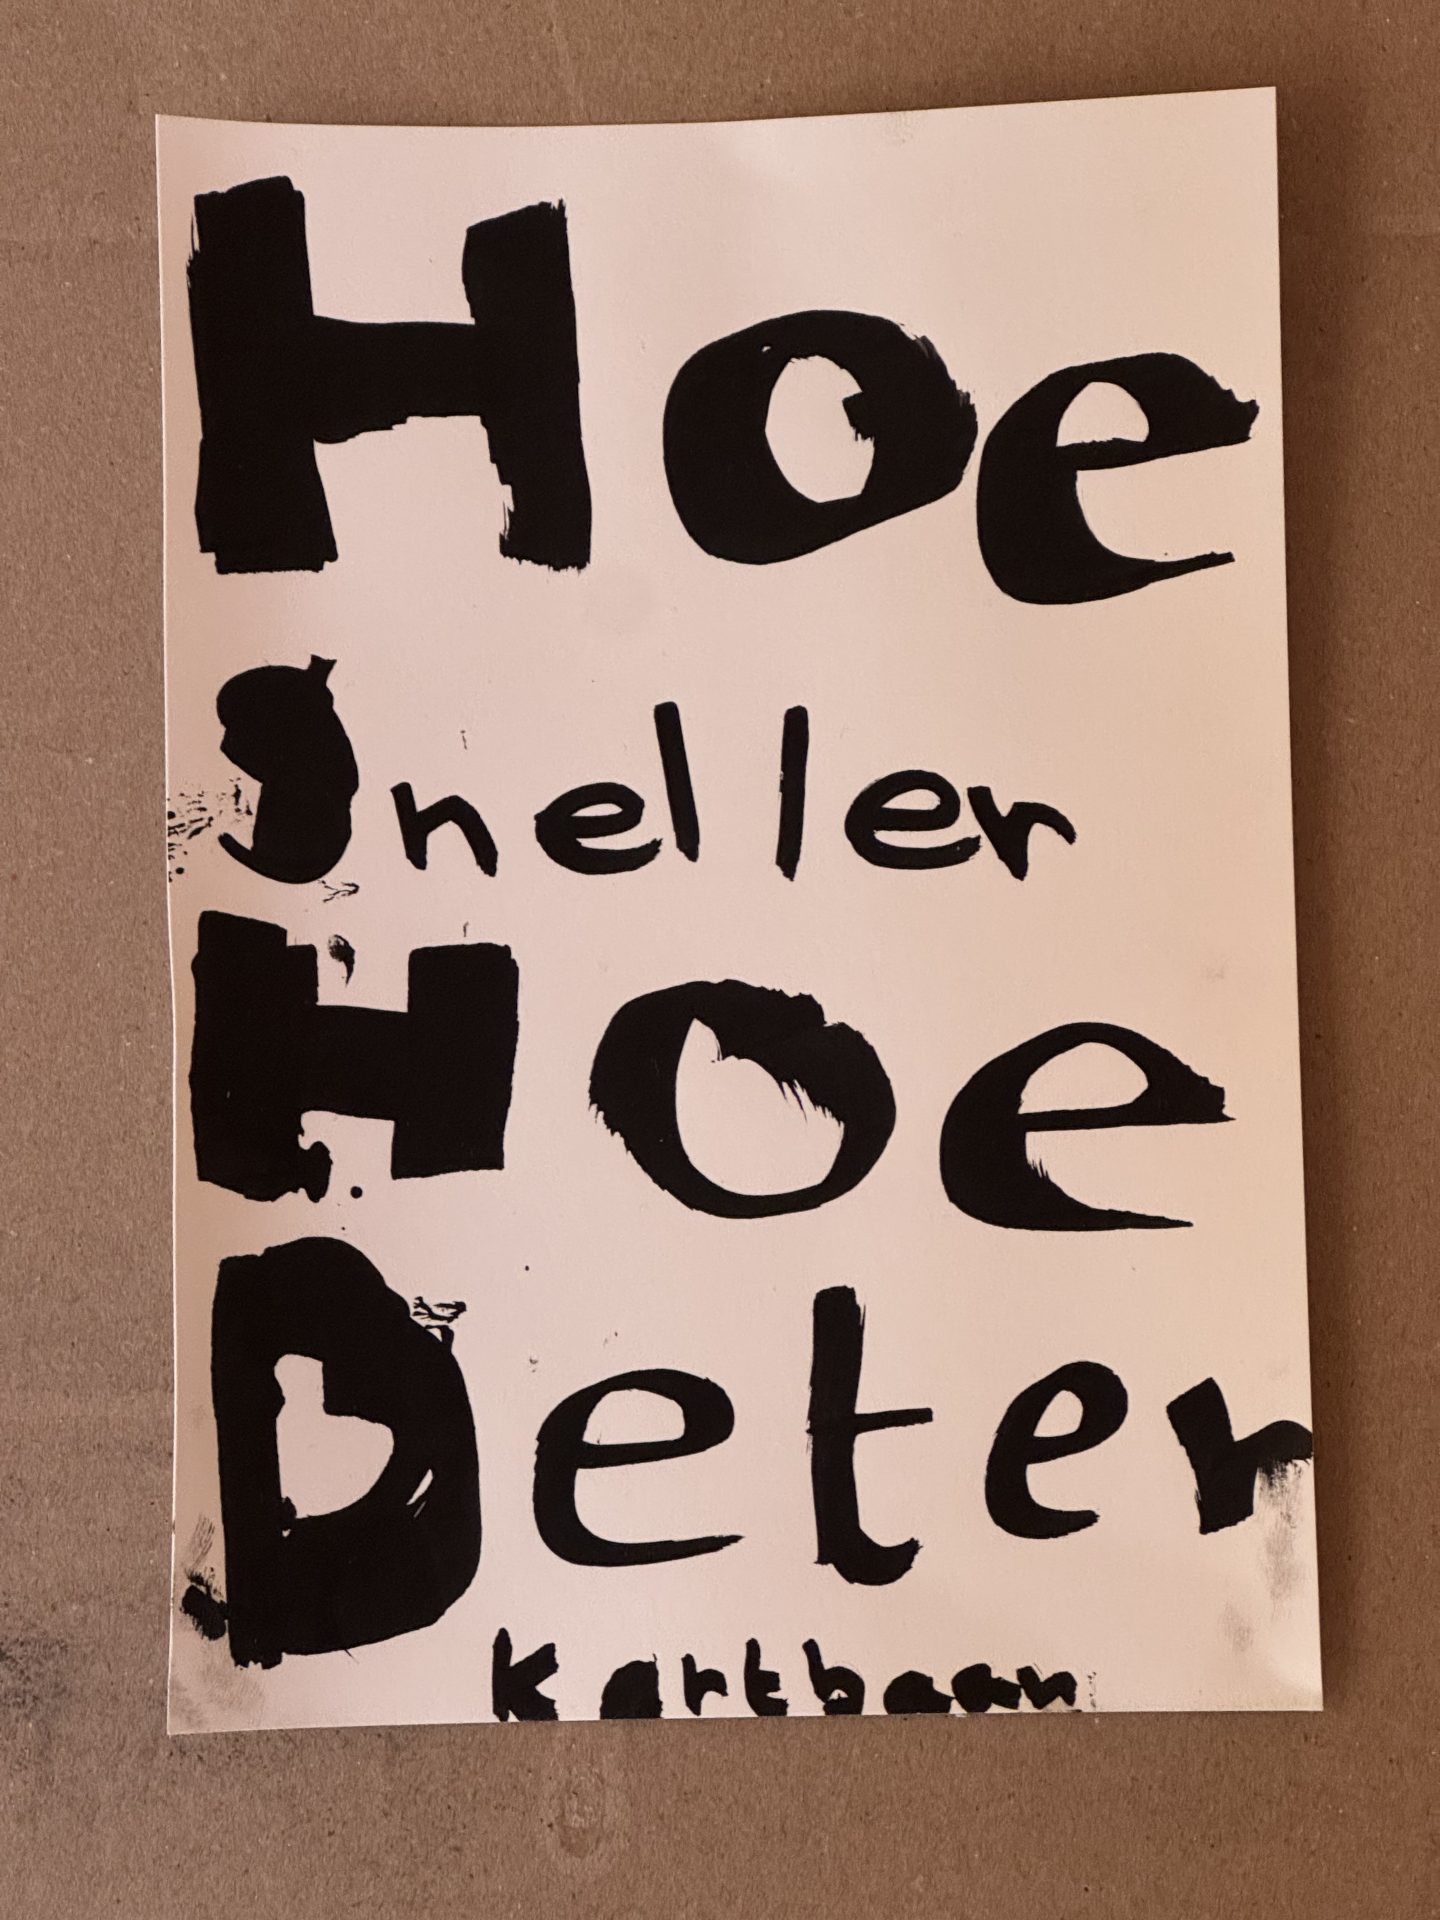 Hoe
Sneller
Hoe
Deter
Kartbaan